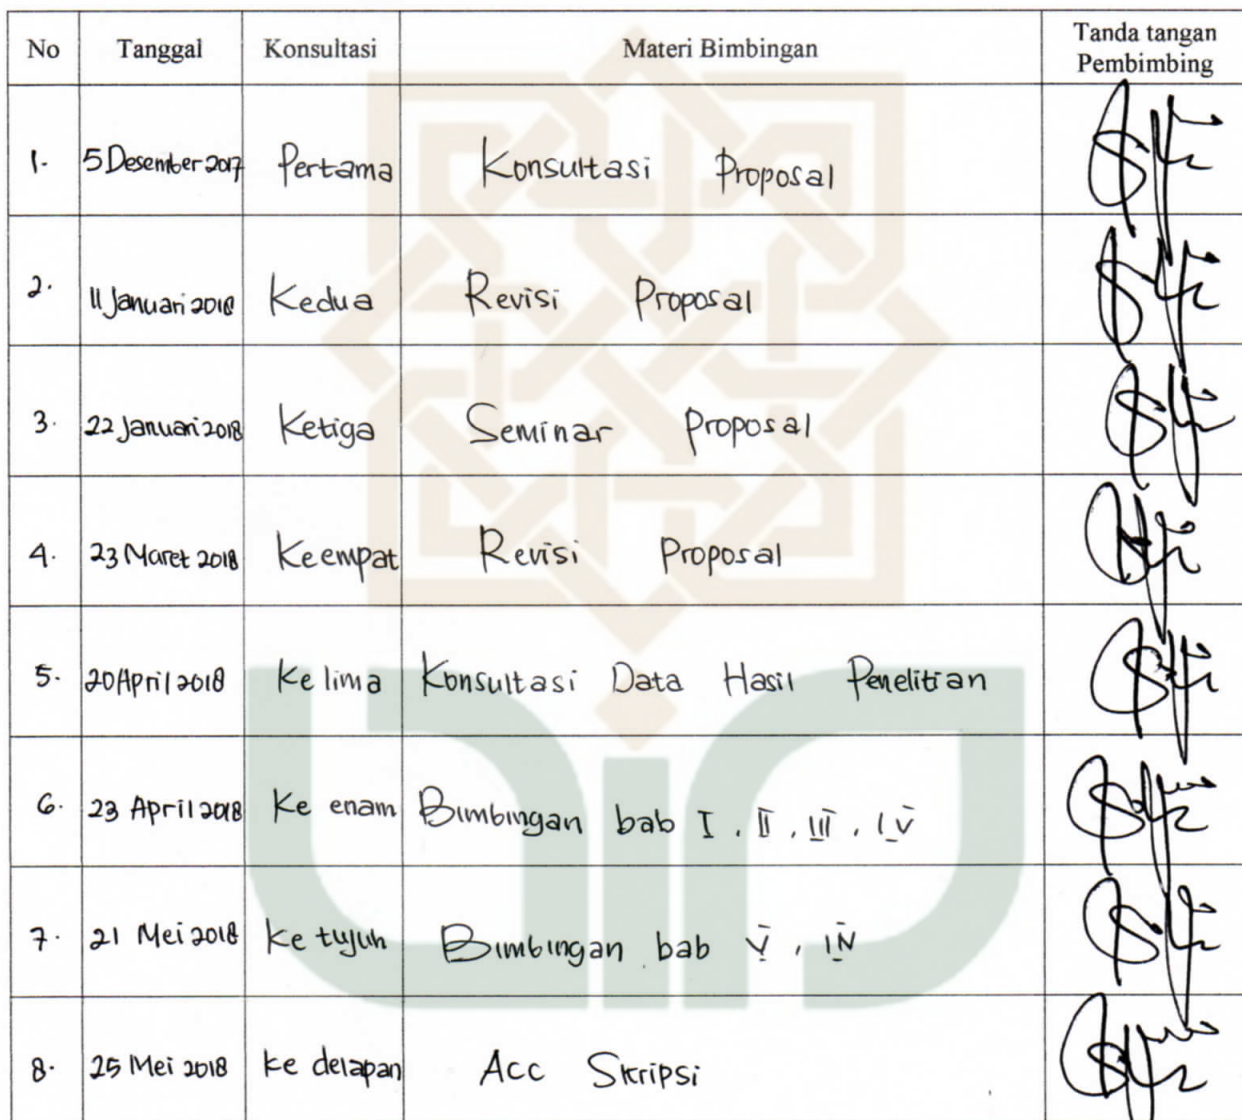 No Tanggal Konsultasi Materi Bimbingan Tanda tangan
Pembimbing
1. 5 Desember 2017 Pertama Konsultasi Proposal
2. 11 Januari 2018 Kedua Revisi Proposal
3. 22 Januari 2018 Ketiga Seminar Proposal
4. 23 Maret 2018 Keempat Revisi Proposal
5. 20 April 2018 Ke lima Konsultasi Data Hasil Penelitian
6. 23 April 2018 Ke enam Bimbingan bab I, II, III, IV
7. 21 Mei 2018 Ke tujuh Bimbingan bab V, IV
8. 25 Mei 2018 Ke delapan Acc Skripsi